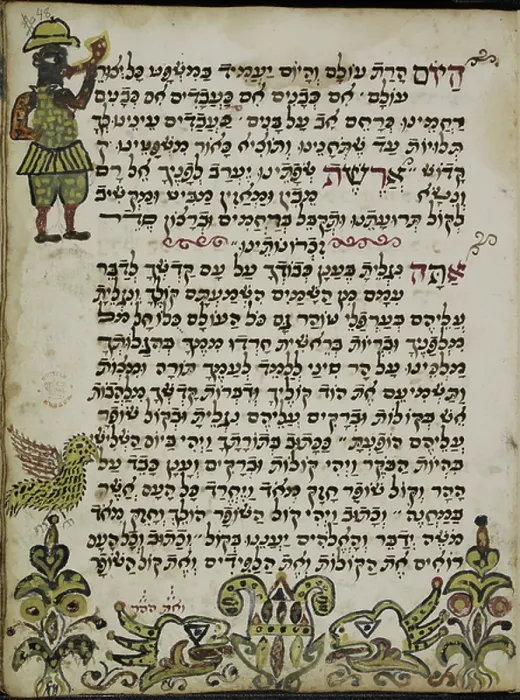 היום הרת עולם והיום יעמיד במשפט כל יצורי
עולם · אם כבנים אם כעבדים אם כבנים
רחמינו כרחם אב על בנים · כעבדים עינינו לך
תלויות עד שתחנינו ותוציא כאור משפטינו
קדוש " ארשת שפתינו יערב לפניך אל רם
ונשא מבין ומאזין מביט ומקשיב
לקול תרועתנו ותקבל ברחמים וברצון סדר
זכרונותינו "
אתה נגלית בענן כבודך על עם קדשך לדבר
עמם מן השמים השמעתם קולך ונגלית
עליהם בערפלי טוהר גם כל העולם כלו חל
מלפניך ובריות בראשית חרדו ממך בהגלותך
מלכינו על הר סיני ללמד לעמך תורה ומצות
ותשמיעם את הוד קוליך ודברות קדשך מלהבות
אש בקולות וברקים עליהם נגלית ובקול שופר
עליהם הופעת " ככתוב בתורתך ויהי ביום השלישי
בהיות הבקר ויהי קולות וברקים וענן כבד על
ההר וקול שופר חזק מאד ויחרד כל העם אשר
במחנה " וכתוב ויהי קול השופר הולך וחזק מאד
משה ידבר והאלהים יעננו בקול " וכתוב וכל העם
רואים את הקולות ואת הלפידים ואת קול השופר
ואת ההר